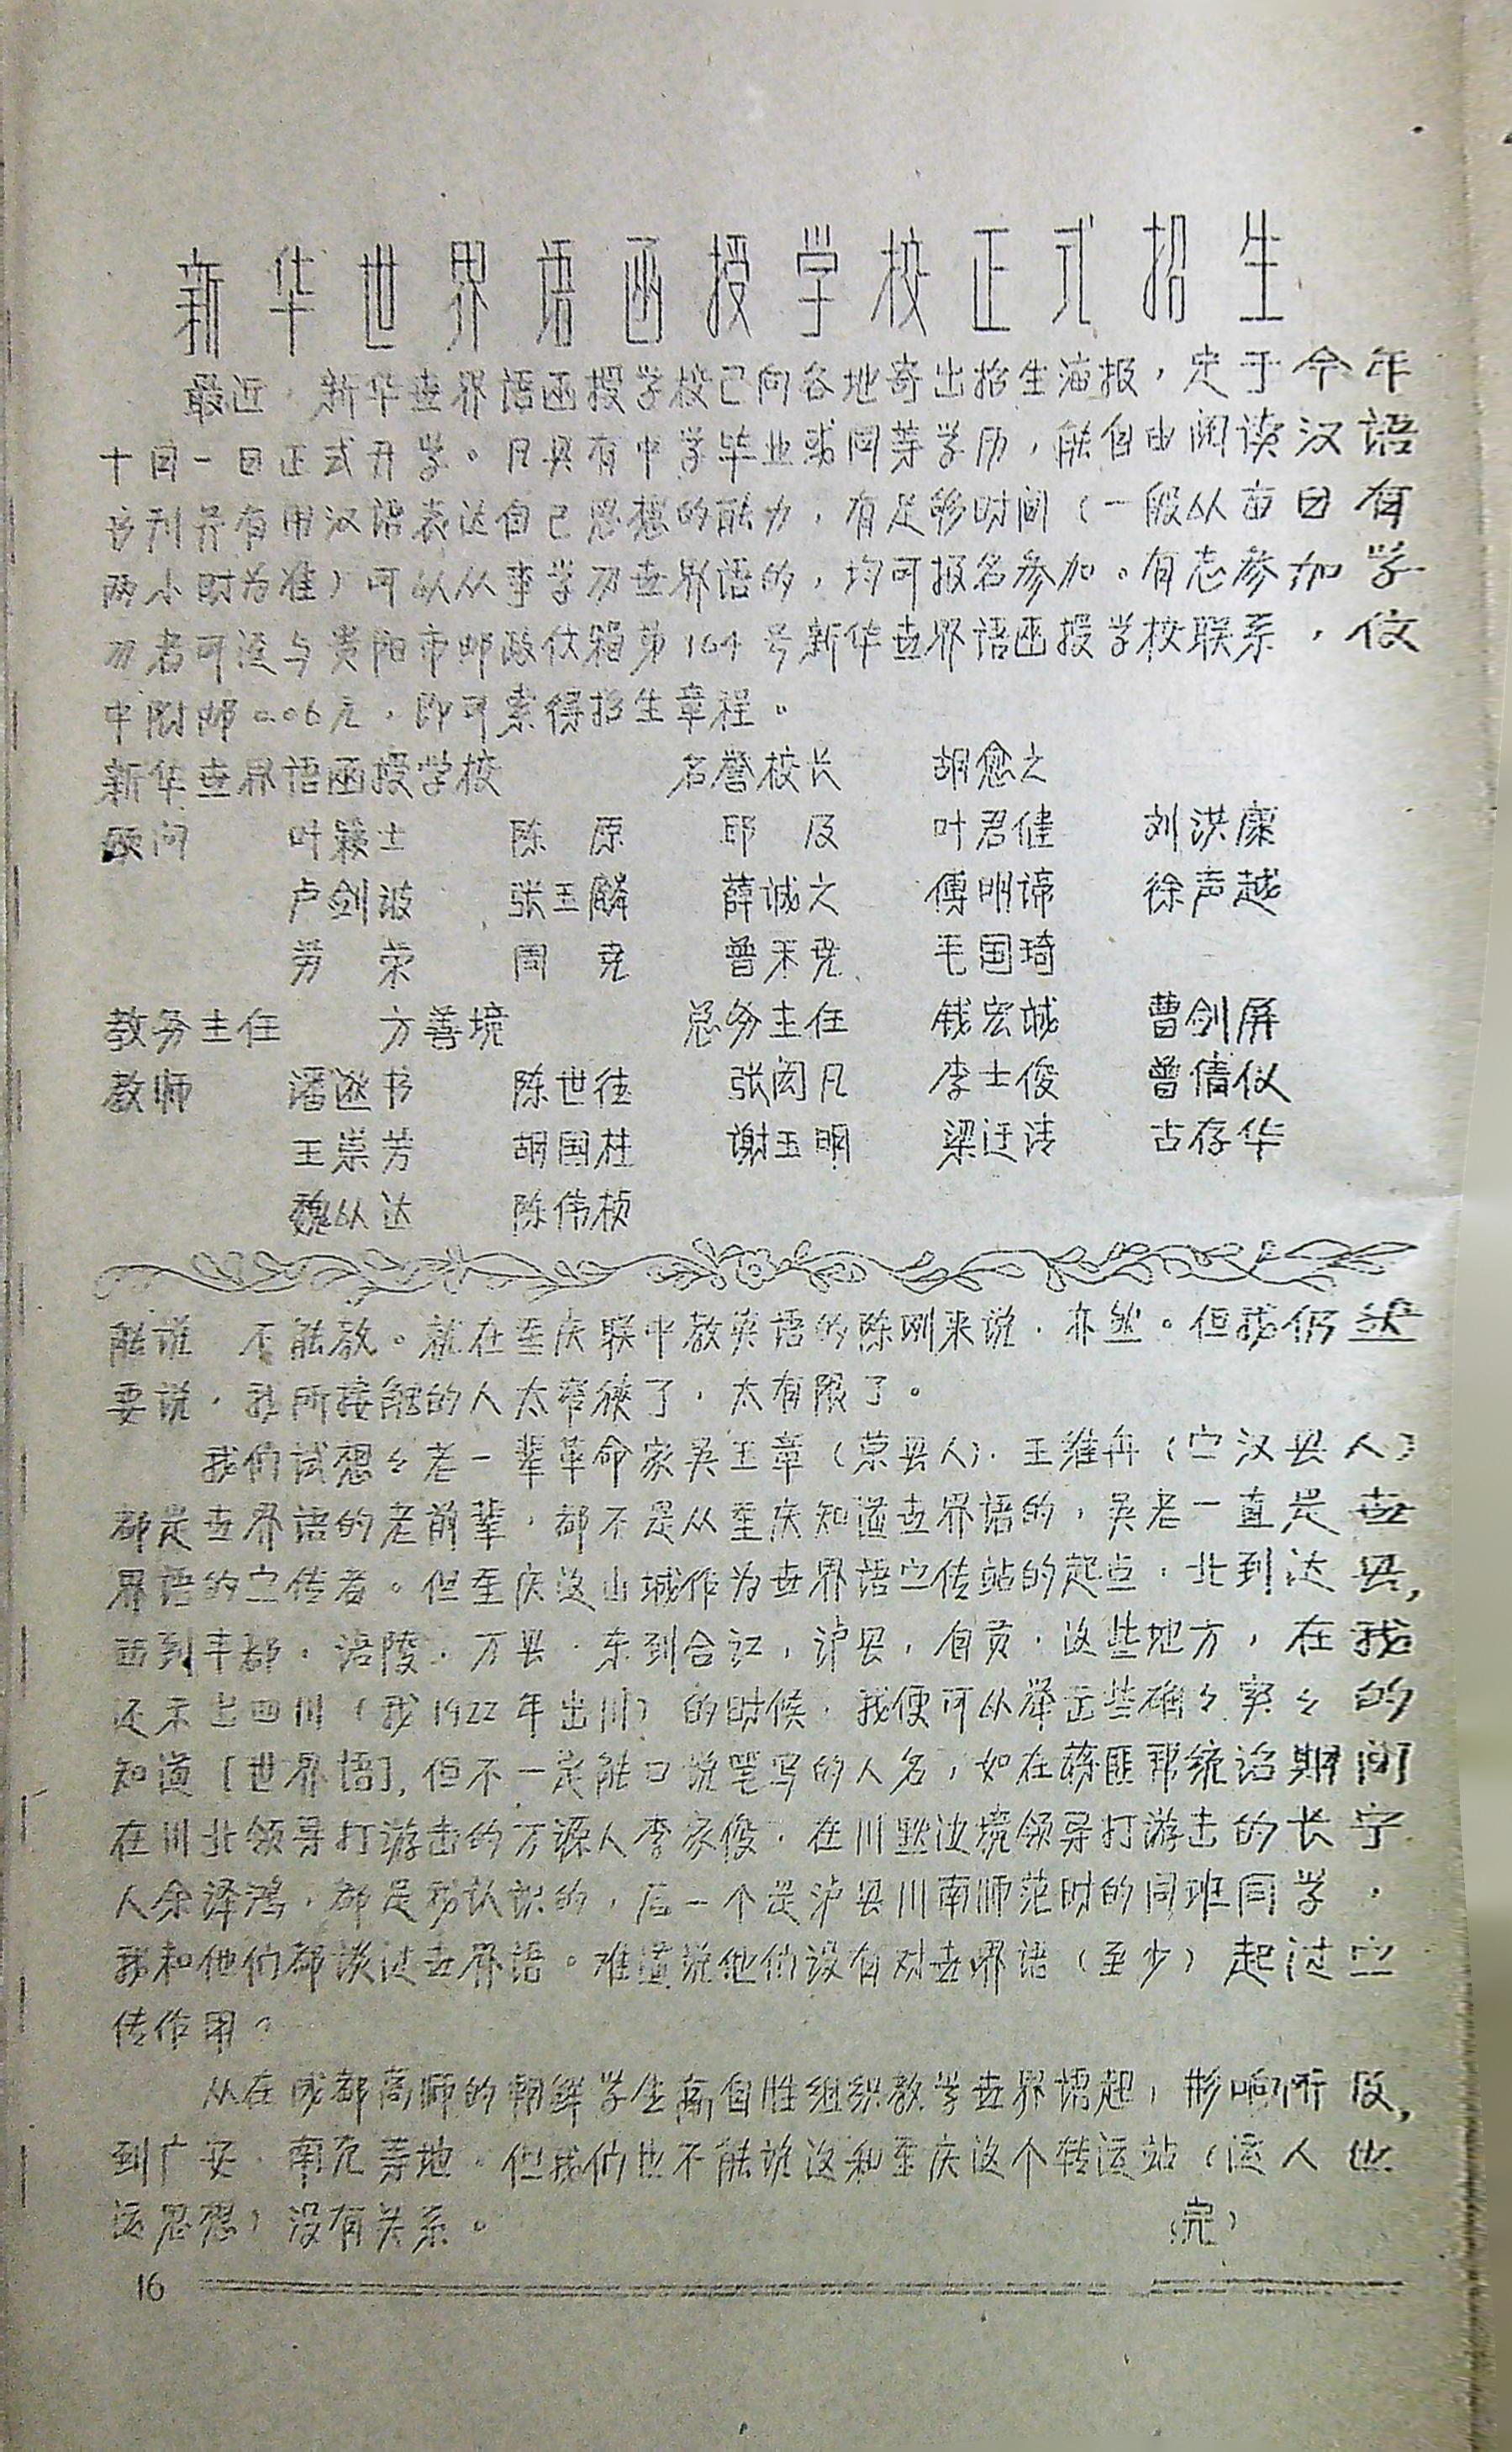 新华世界语函授学校正式招生
最近,新华世界语函授学校已向各地寄出招生海报,定于今年
十月一日正式开学。凡具有中学毕业或同等学历,能自由阅读汉语
书刊并有用汉语表达自己思想的能力,有足够时间(一般以每日有
两小时为准)可以从事学习世界语的,均可报名参加。有志参加学
习者可迳与贵阳市邮政信箱第164号新华世界语函授学校联系,信
中附邮0.06元,即可索得招生章程。
新华世界语函授学校 名誉校长 胡愈之
顾问 叶籁士 陈 原 邱 及 叶君健 刘洪康
卢剑波 张玉麟 薛诚之 傅明谛 徐声越
劳 荣 周 尧 曾禾尧 毛国琦
教务主任 方善境 总务主任 钱宏诚 曹剑屏
教师 潘逖书 陈世德 张闳凡 李士俊 曾倩仪
王崇芳 胡国柱 谢玉明 梁迂清 古存华
魏从达 陈伟桢
能说 不能教。就在重庆联中教英语的陈刚来说,亦然。但我仍然
要说,我所接触的人太窄狭了,太有限了。
我们试想々老一辈革命家吴玉章(荣县人),王维舟(宣汉县人)
都是世界语的老前辈,都不是从重庆知道世界语的,吴老一直是世
界语的宣传者。但重庆这山城作为世界语宣传站的起点,北到达县,
西到丰都,涪陵,万县,东到合江,泸县,自贡,这些地方,在我
还未出四川(我1922年出川)的时候,我便可以举出些确々实々的
知道[世界语],但不一定能口说笔写的人名,如在蒋匪帮统治期间
在川北领导打游击的万源人李家俊,在川黔边境领导打游击的长宁
人余泽鸿,都是我认识的,后一个是泸县川南师范时的同班同学,
我和他们都谈过世界语。难道说他们没有对世界语(至少)起过宣
传作用?
从在成都高师的朝鲜学生高自性组织教学世界语起,影响所及,
到广安,南充等地,但我们也不能说这和重庆这个转运站(运人也
运思想)没有关系。
(完)
16